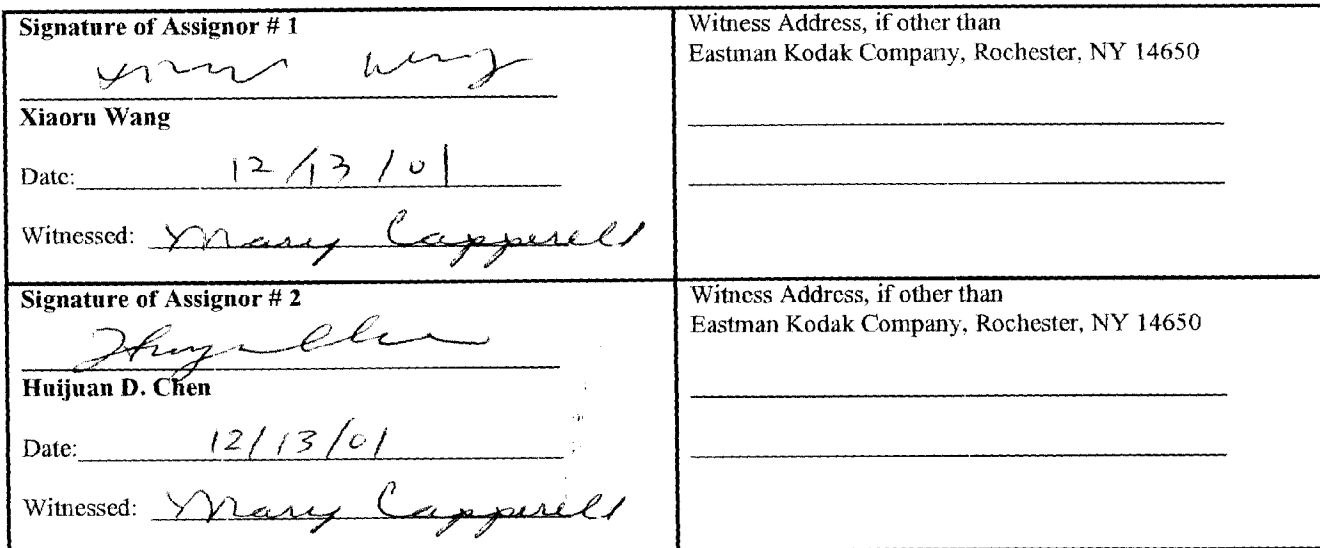 Signature of Assignor # 1
Xiaoru Wang
Date: 12/13/01
Witnessed: Mary Capperell
Witness Address, if other than
Eastman Kodak Company, Rochester, NY 14650
Signature of Assignor # 2
Huijuan D. Chen
Date: 12/13/01
Witnessed: Mary Capperell
Witness Address, if other than
Eastman Kodak Company, Rochester, NY 14650